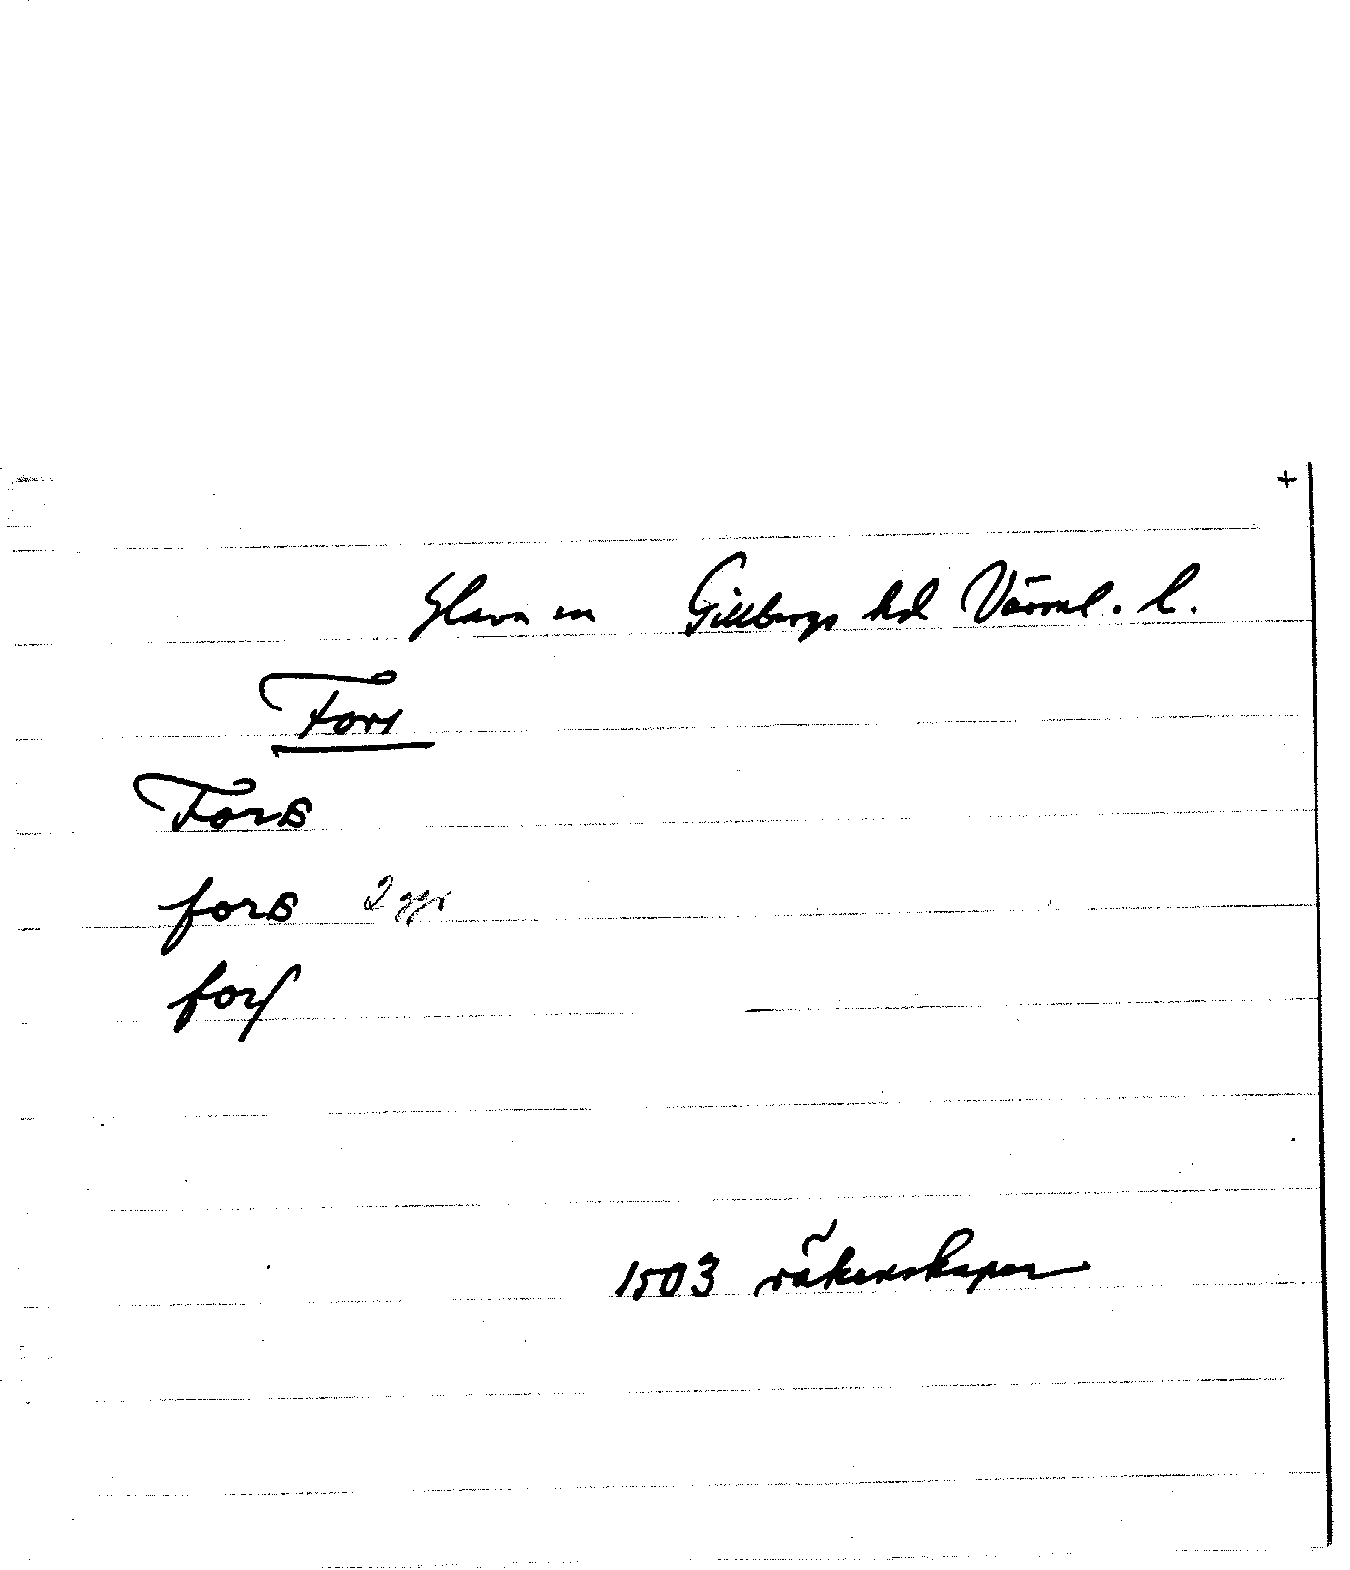 +
Glava sn Gillbergs hd Värml. l.
Fors
Fors
fors 2 ggr
forſ
1503 räkenskaper